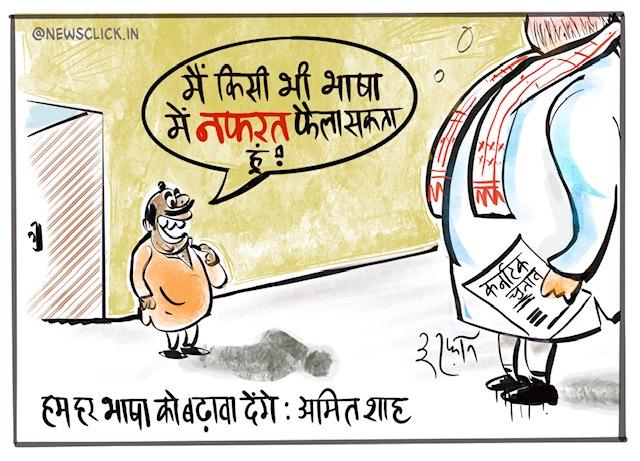 @NEWSCLICK.IN
मैं किसी भी भाषा
में नफरत फैला सकता
हूं!
कर्नाटक
चुनाव
इरफ़ान
हम हर भाषा को बढ़ावा देंगे : अमित शाह